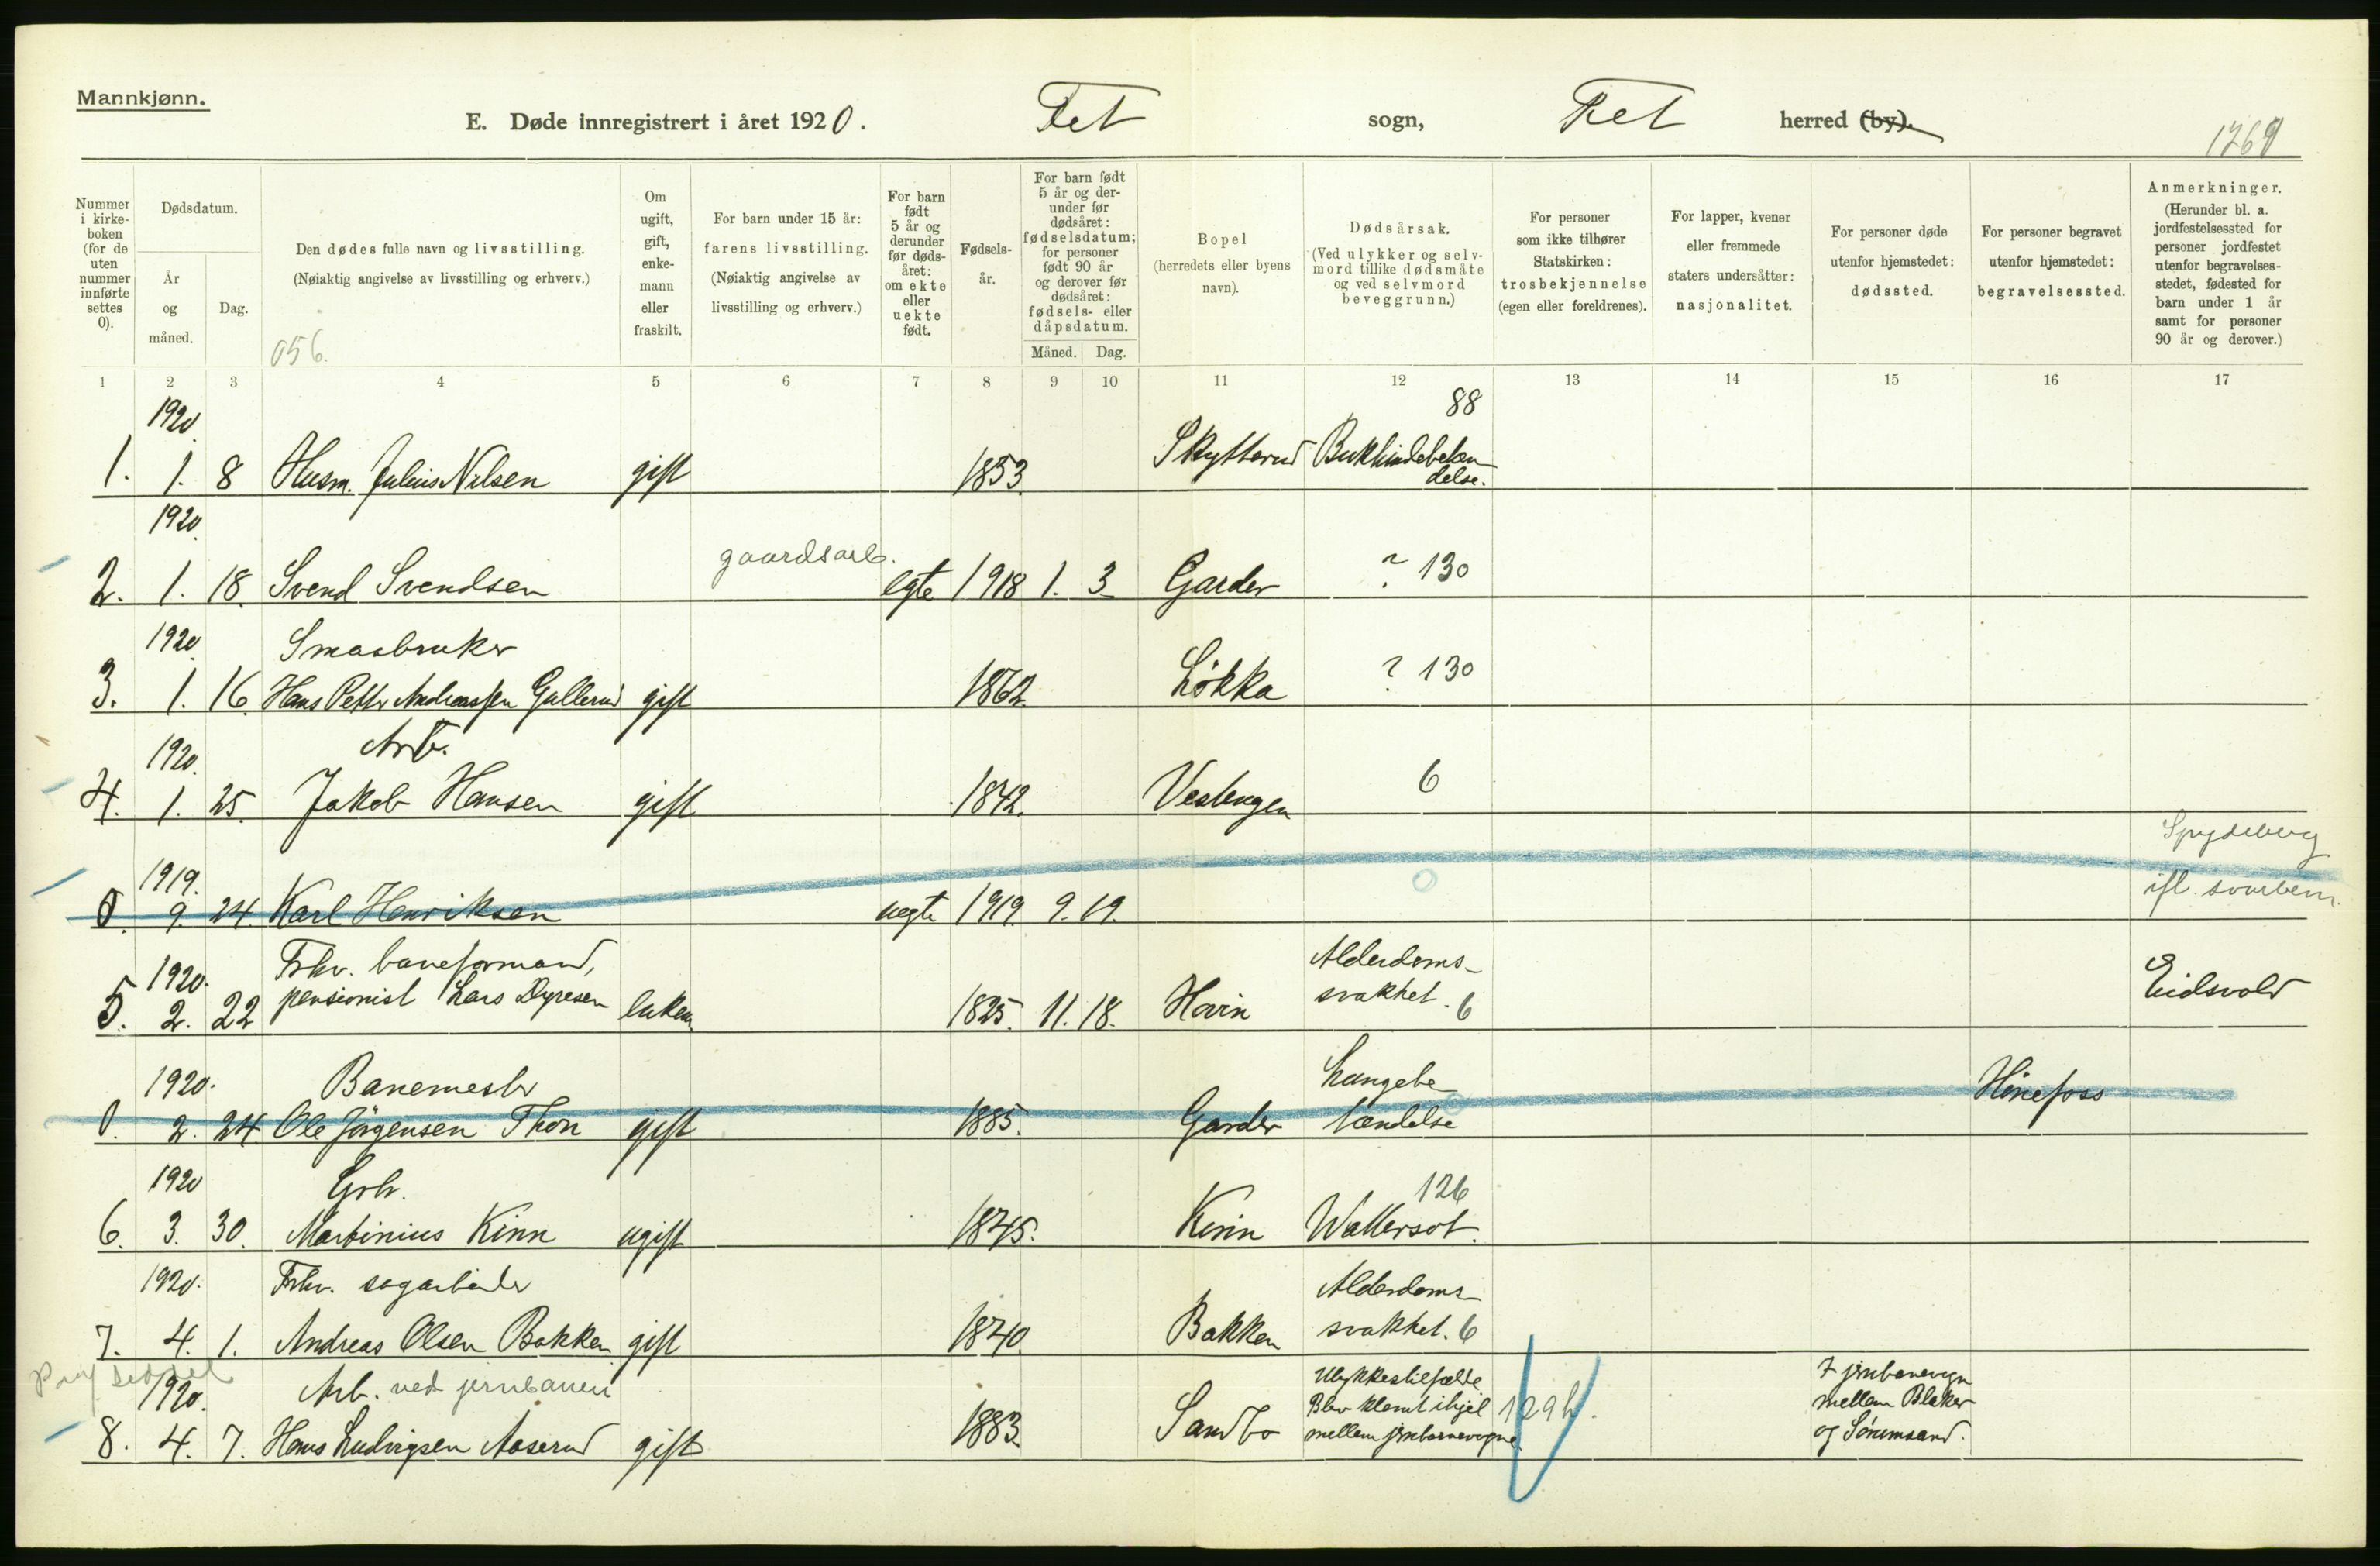 Mannkjønn.
E. Døde innregistrert i året 1920. Fet sogn, Fet herred (by).
Nummer i kirke-boken (for de uten nummer innførte settes 0).
Dødsdatum.
År og måned.
Dag.
Den dødes fulle navn og livsstilling.
(Nøiaktig angivelse av livsstilling og erhverv.)
056.
Om ugift, gift, enke-mann eller fraskilt.
For barn under 15 år: farens livsstilling.
(Nøiaktig angivelse av livsstilling og erhverv.)
For barn født 5 år og derunder før døds-året: om ekte eller uekte født.
Fødsels-år.
For barn født 5 år og der-under før dødsåret: fødselsdatum; for personer født 90 år og derover før dødsåret: fødsels- eller dåpsdatum.
Måned. Dag.
Bopel (herredets eller byens navn).
Dødsårsak.
(Ved ulykker og selv-mord tillike dødsmåte og ved selvmord beveggrunn.)
For personer som ikke tilhører Statskirken: trosbekjennelse (egen eller foreldrenes).
For lapper, kvener eller fremmede staters undersåtter: nasjonalitet.
For personer døde utenfor hjemstedet: dødssted.
For personer begravet utenfor hjemstedet: begravelsessted.
Anmerkninger.
(Herunder bl. a. jordfestelsessted for personer jordfestet utenfor begravelses-stedet, fødested for barn under 1 år samt for personer 90 år og derover.)
1 2 3 4 5 6 7 8 9 10 11 12 13 14 15 16 17
1920. 88
1. 1. 8 Husm. Julius Nilsen gift 1853. Skytterud Bukhindebetæn-
delse.
1920.
gaardsarb.
2. 1. 18. Svend Svendsen egte 1918 1. 3 Garder ? 130
1920. Smaabruker
3. 1. 16. Hans Petter Andreassen Gullerud gift 1862. Løkka ? 130
1920. Arb.
4. 1. 25. Jakob Hansen gift 1842. Vestengen 6
Spydeberg
1919.
0. 9. 24. Karl Henriksen uegte 1919. 9. 19. ifl. svarbem.
1920. Fhv. baneformand, Alderdoms-
5. 2. 22 pensionist Lars Dyresen enkem. 1825. 11. 18. Hovin svakhet. 6 Eidsvold
1920. Banemester Lungebe-
0. 2. 24 Ole Jörgensen Thon gift 1885. Garder tændelse Hönefoss
1920 Grbr. 126
6. 3. 30. Martinius Kinn ugift 1845. Kinn Wattersot.
1920. Fhv. sagarbeider Alderdoms-
7. 4. 1. Andreas Olsen Bakken gift 1840. Bakken svakhet. 6
1920. Arb. ved jernbanen Ulykkestilfælde I jernbanevogn
Blev klemt ihjel 129 h. mellem Blaker
8. 4. 7. Hans Ludvigsen Aaserud gift 1883. Sandbo mellem jernbanevogne. og Sörumsand.